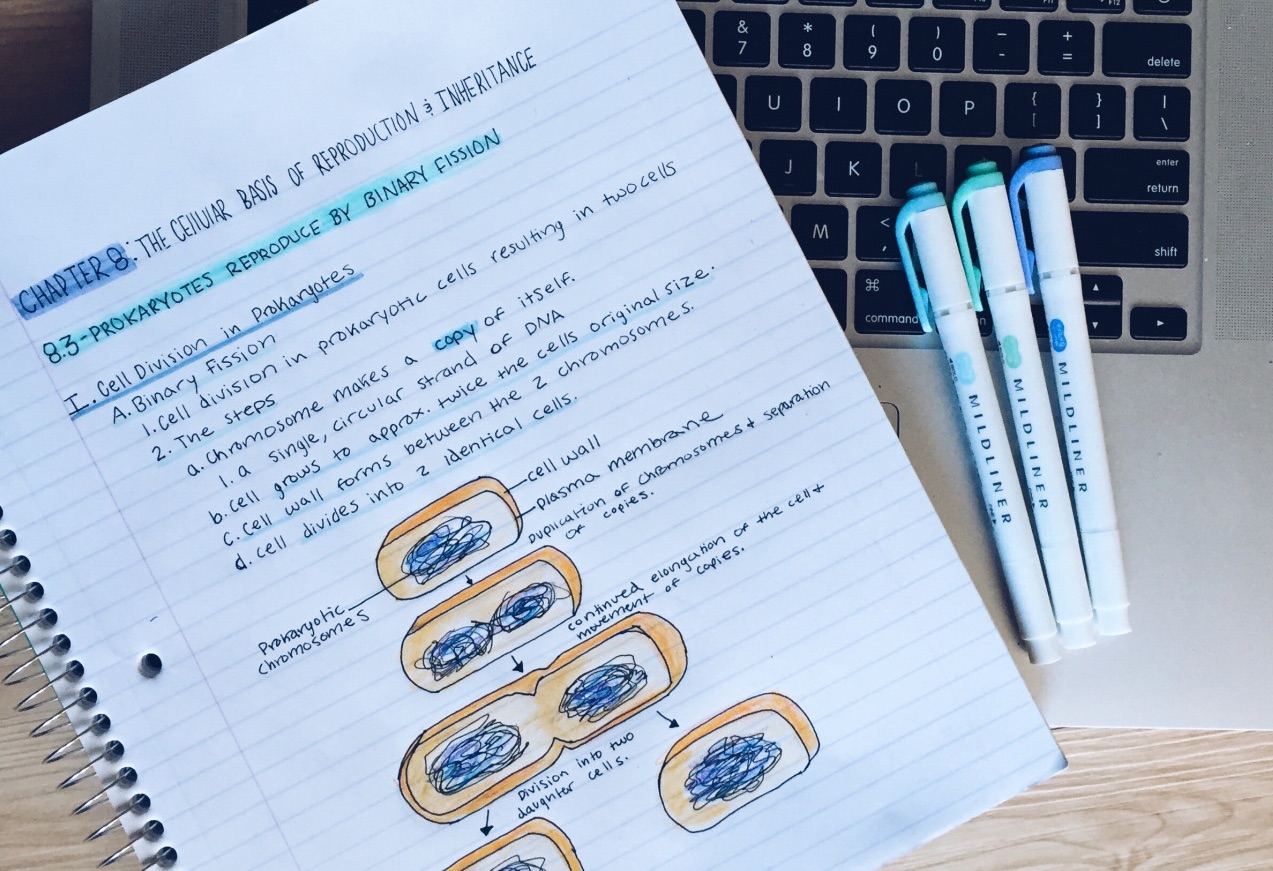 CHAPTER 8: THE CELLULAR BASIS OF REPRODUCTION & INHERITANCE
8.3-PROKARYOTES REPRODUCE BY BINARY FISSION
I. Cell Division in Prokaryotes
A. Binary Fission
1. Cell division in prokaryotic cells resulting in two cells
2. The steps
a. chromosome makes a copy of itself.
1. a single, circular strand of DNA
b. cell grows to approx. twice the cells original size.
c. Cell wall forms between the 2 chromosomes.
d. cell divides into 2 identical cells.
cell wall
plasma membrane
Duplication of chromosomes & separation
of copies.
Prokaryotic
chromosomes
continued elongation of the cell &
movement of copies.
Division into two
daughter cells.
& 7
* 8
( 9
) 0
_ -
+ =
delete
U
I
O
P
{ [
} ]
| \
J
K
L
enter
return
M
< ,
shift
⌘
command
MILDLINER
MILDLINER
MILDLINER